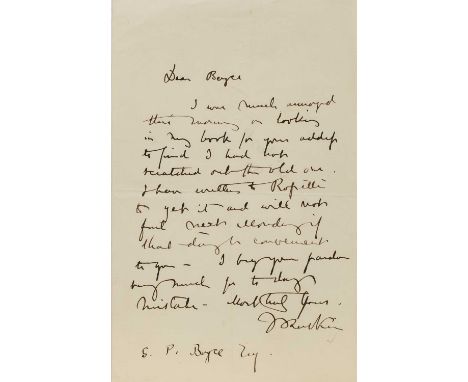 Dear Boyce
I was much annoyed
this morning on looking
in my book for your address
to find I had not
scratched out the old one.
I have written to Rossetti
to get it and will not
fail next Monday if
that day be convenient
to you – I beg your pardon
very much for to day's
mistake – Most truly Yours.
J Ruskin
G. P. Boyce Esq.